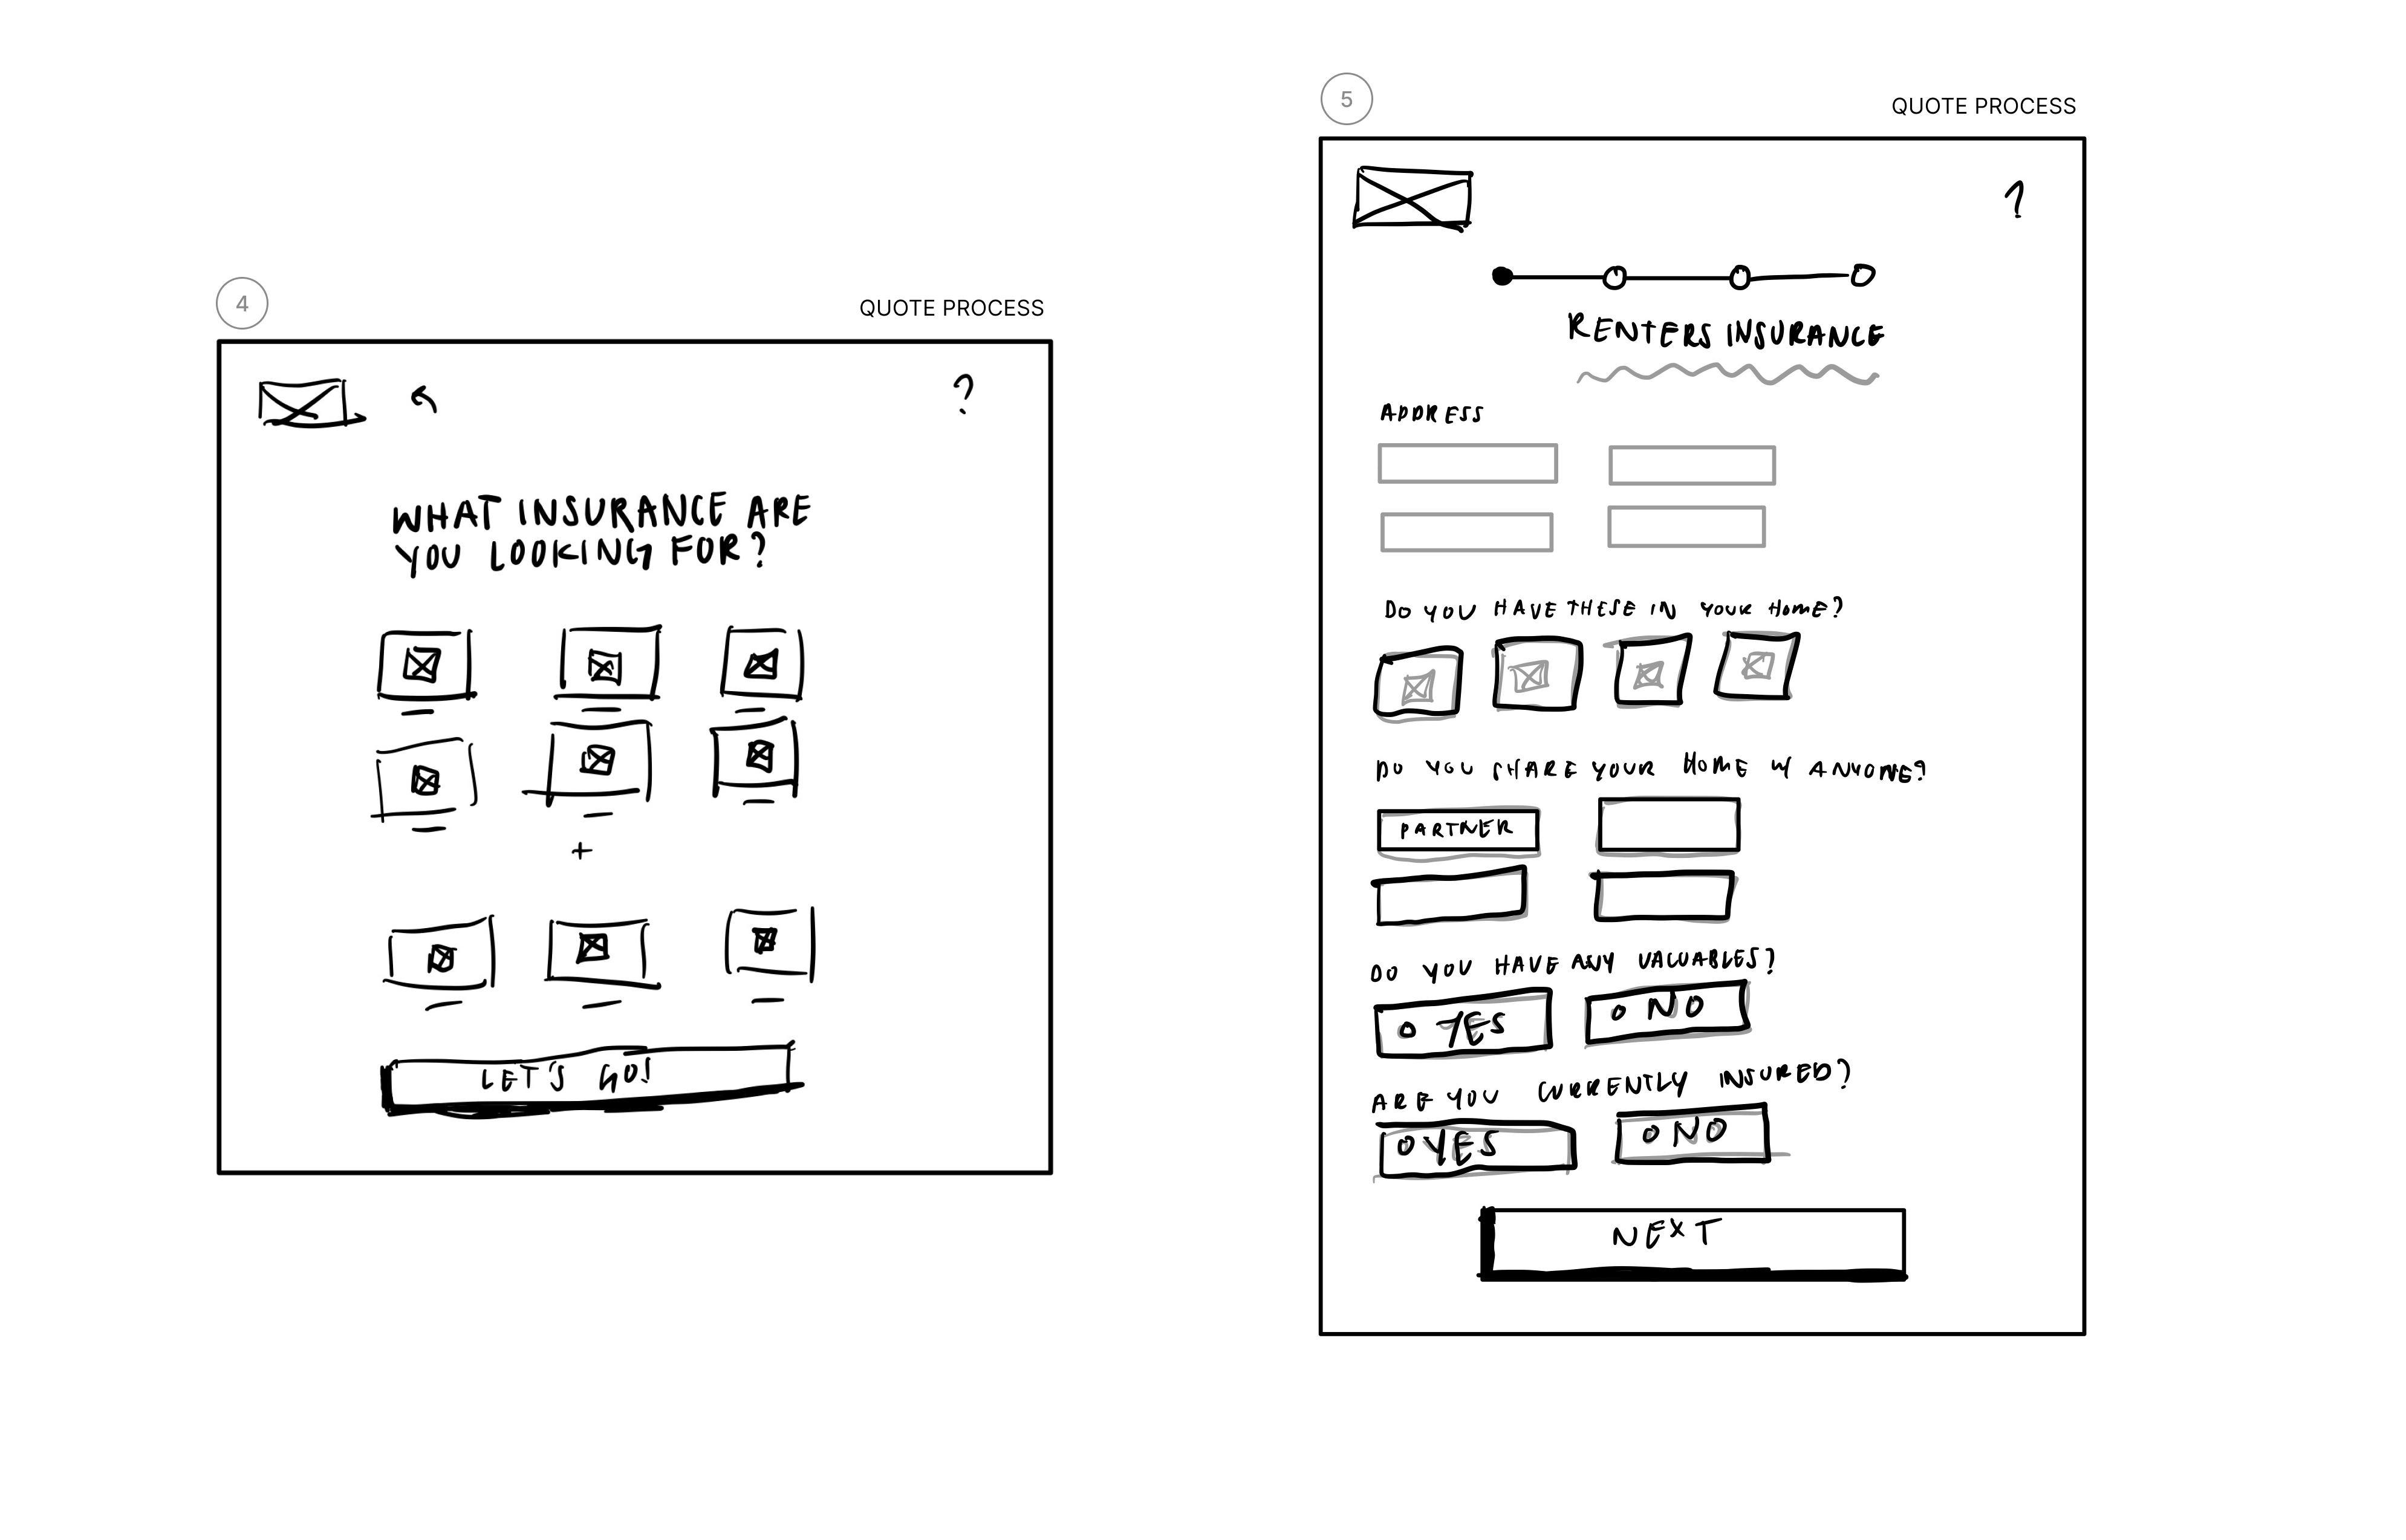 4
QUOTE PROCESS
?
WHAT INSURANCE ARE
YOU LOOKING FOR?
+
LET'S GO!
5
QUOTE PROCESS
?
RENTERS INSURANCE
ADDRESS
DO YOU HAVE THESE IN YOUR HOME?
DO YOU SHARE YOUR HOME W ANYONE?
PARTNER
DO YOU HAVE ANY VALUABLES?
O YES O NO
ARE YOU CURRENTLY INSURED?
O YES O NO
NEXT